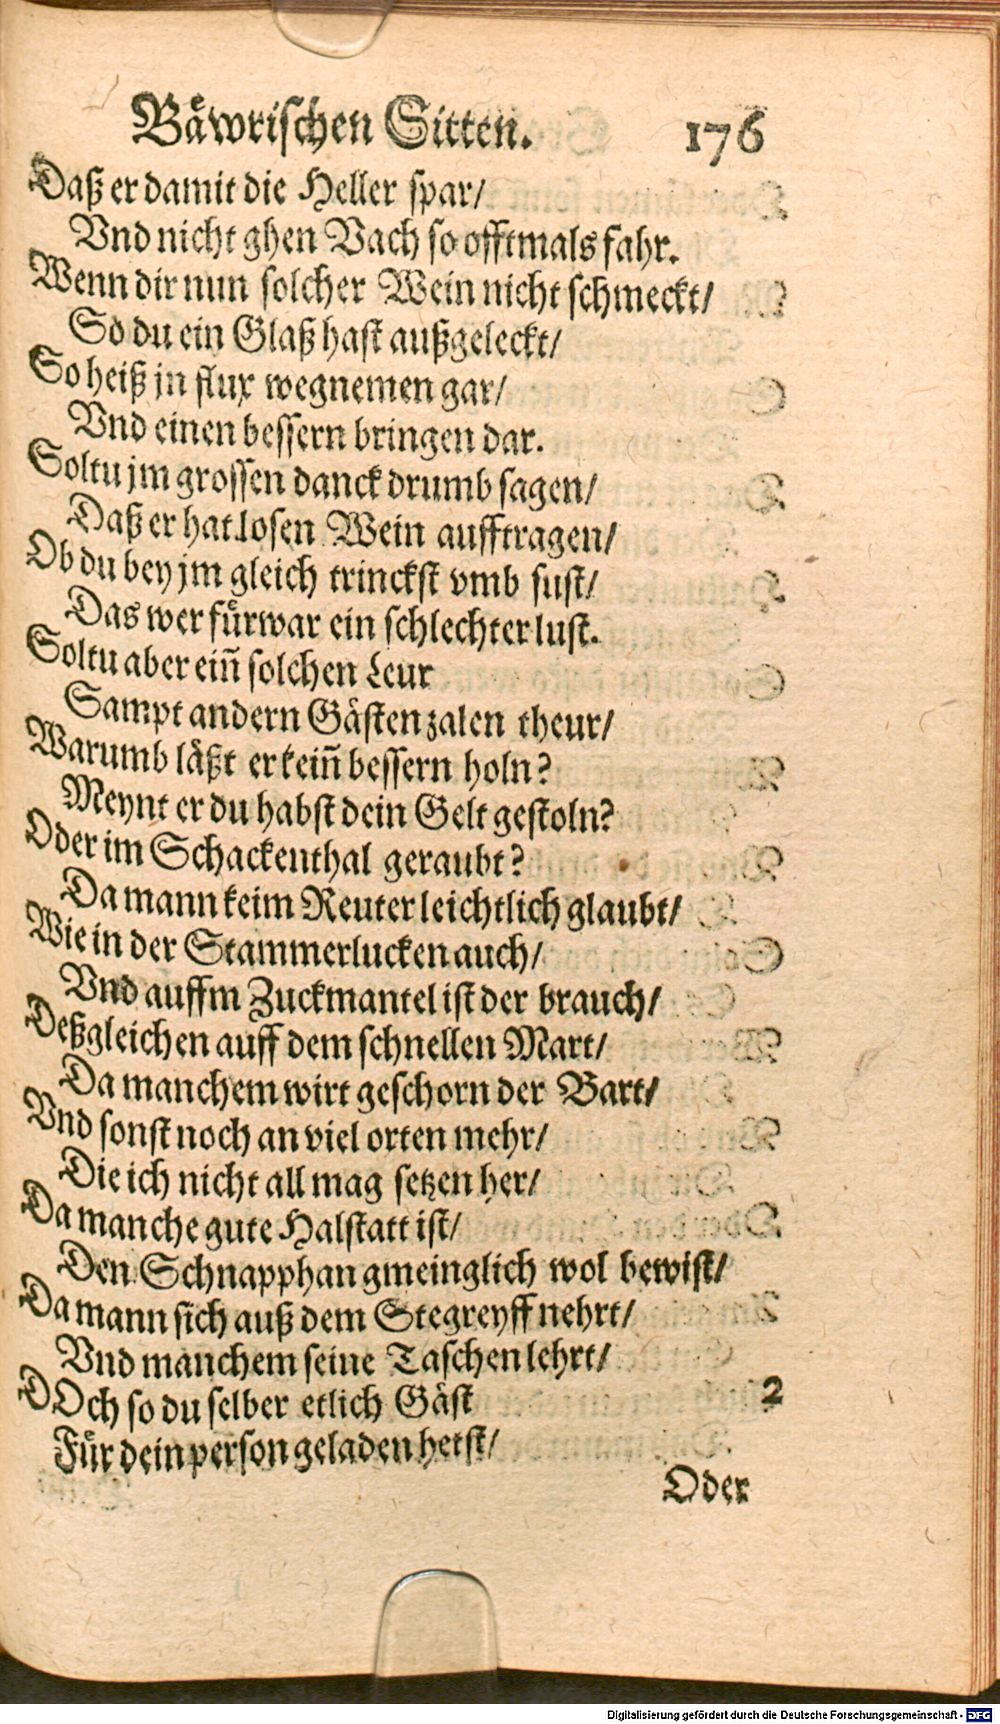 Bäwrischen Sitten. 176
Daß er damit die Heller spar/
Vnd nicht ghen Bach so offtmals fahr.
Wenn dir nun solcher Wein nicht schmeckt/
So du ein Glaß hast außgeleckt/
So heiß jn flux wegnemen gar/
Vnd einen bessern bringen dar.
Soltu jm grossen danck drumb sagen/
Daß er hat losen Wein aufftragen/
Ob du bey jm gleich trinckst vmb sust/
Das wer fürwar ein schlechter lust.
Soltu aber eiñ solchen Leur
Sampt andern Gästen zalen theur/
Warumb läßt er keiñ bessern holn?
Meynt er du habst dein Gelt gestoln?
Oder im Schackenthal geraubt?
Da mann keim Reuter leichtlich glaubt/
Wie in der Stammerlucken auch/
Vnd auffm Zuckmantel ist der brauch/
Deßgleichen auff dem schnellen Mart/
Da manchem wirt geschorn der Bart/
Vnd sonst noch an viel orten mehr/
Die ich nicht all mag setzen her/
Da manche gute Halstatt ist/
Den Schnapphan gmeinglich wol bewist/
Da mann sich auß dem Stegreyff nehrt/
Vnd manchem seine Taschen lehrt/
DOch so du selber etlich Gäst 2
Für dein person geladen hetst/
Oder
Digitalisierung gefördert durch die Deutsche Forschungsgemeinschaft - DFG